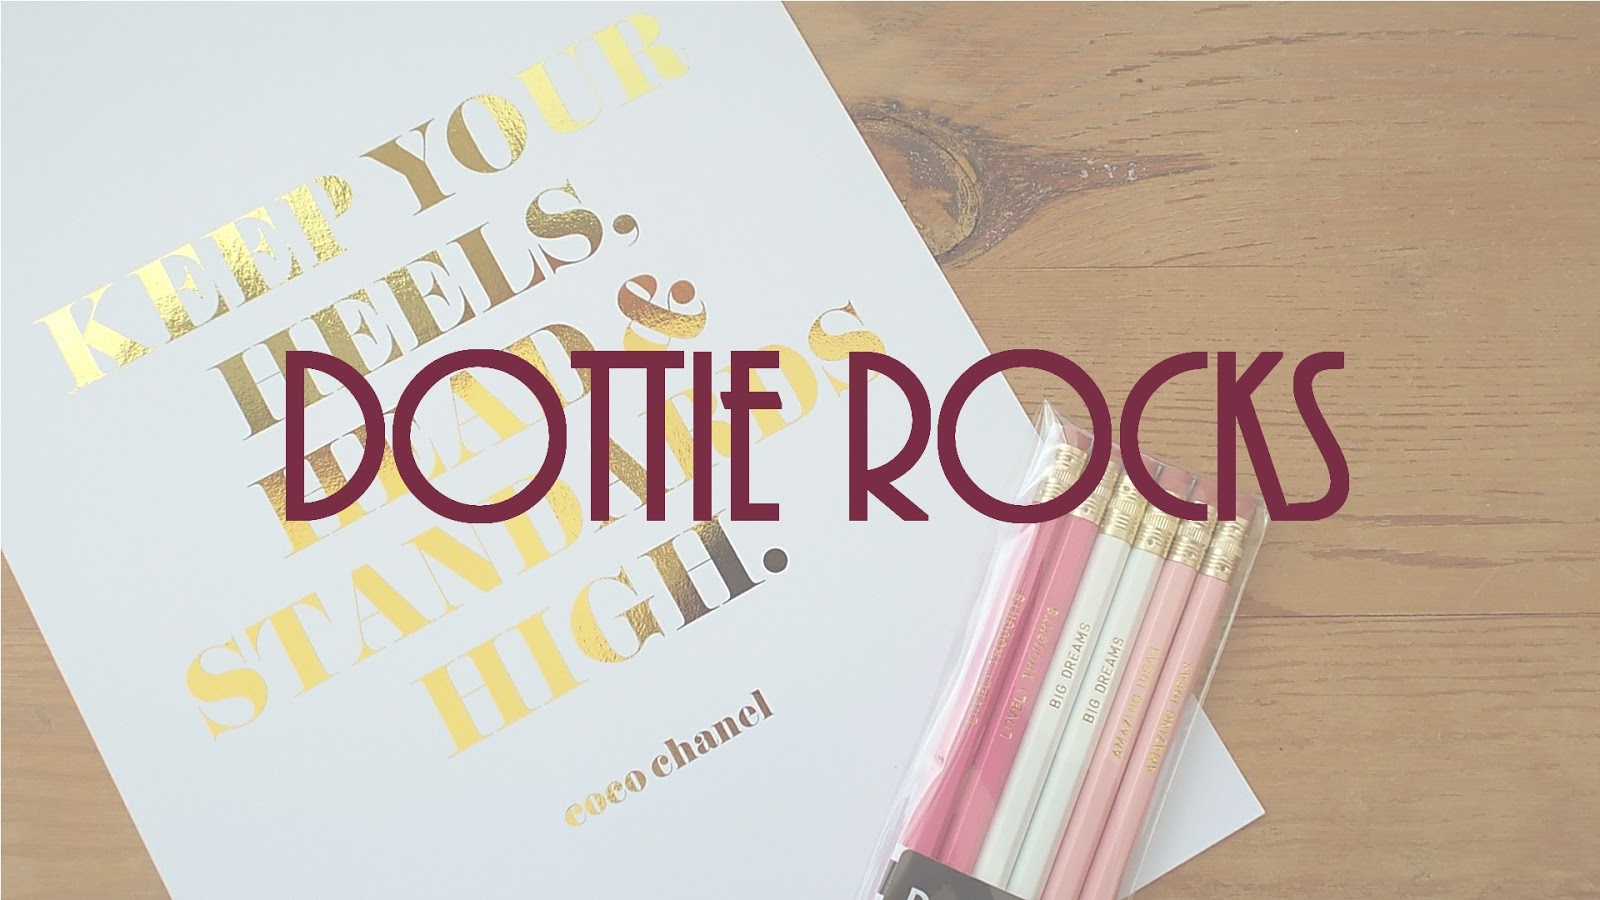 KEEP YOUR
HEELS,
HEAD &
STANDARDS
HIGH.
coco chanel
DOTTIE ROCKS
LOVELY THOUGHTS
LOVELY THOUGHTS
BIG DREAMS
BIG DREAMS
AMAZING IDEAS
AMAZING IDEAS